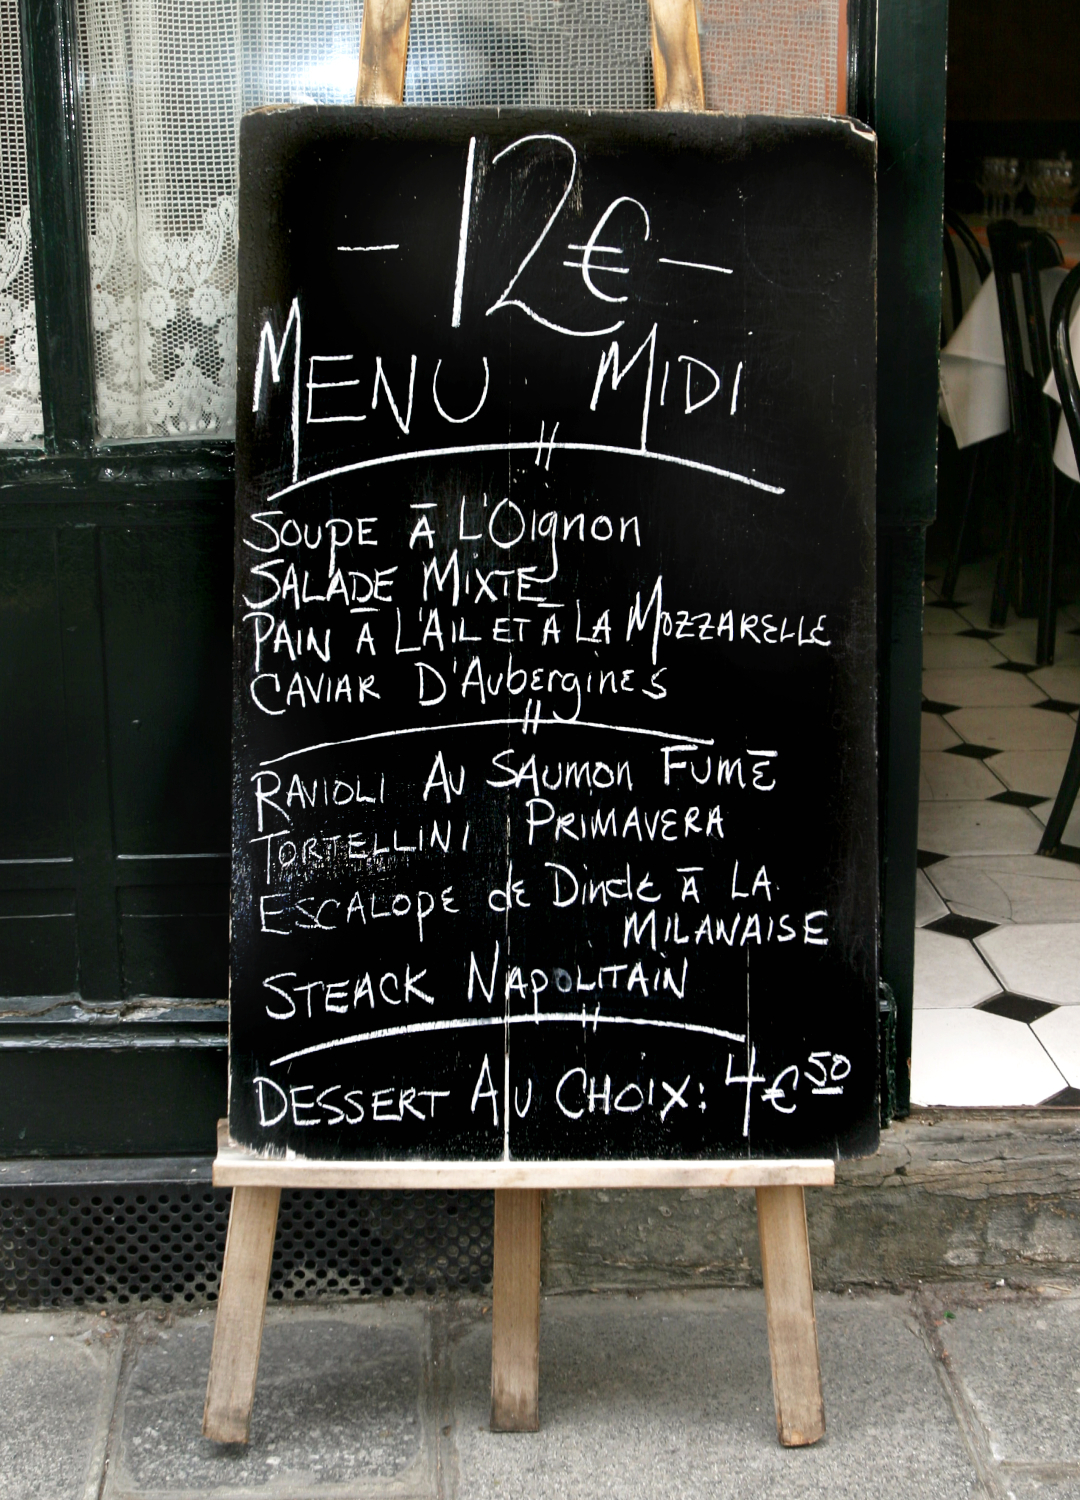 - 12€ -
MENU MIDI
SOUPE Ā L'OIgnon
SALADE MIXTE
PAIN Ā L'AIL ET Ā LA MOZZARELLE
CAVIAR D'AUbErginES
RAVIOLI AU SAUmon FUMĒ
TORTELLINI PRIMAVERA
ESCALOPE dE DindE Ā LA
MILANAISE
STEACK NAPOLITAIN
DESSERT AU CHOIX: 4€50